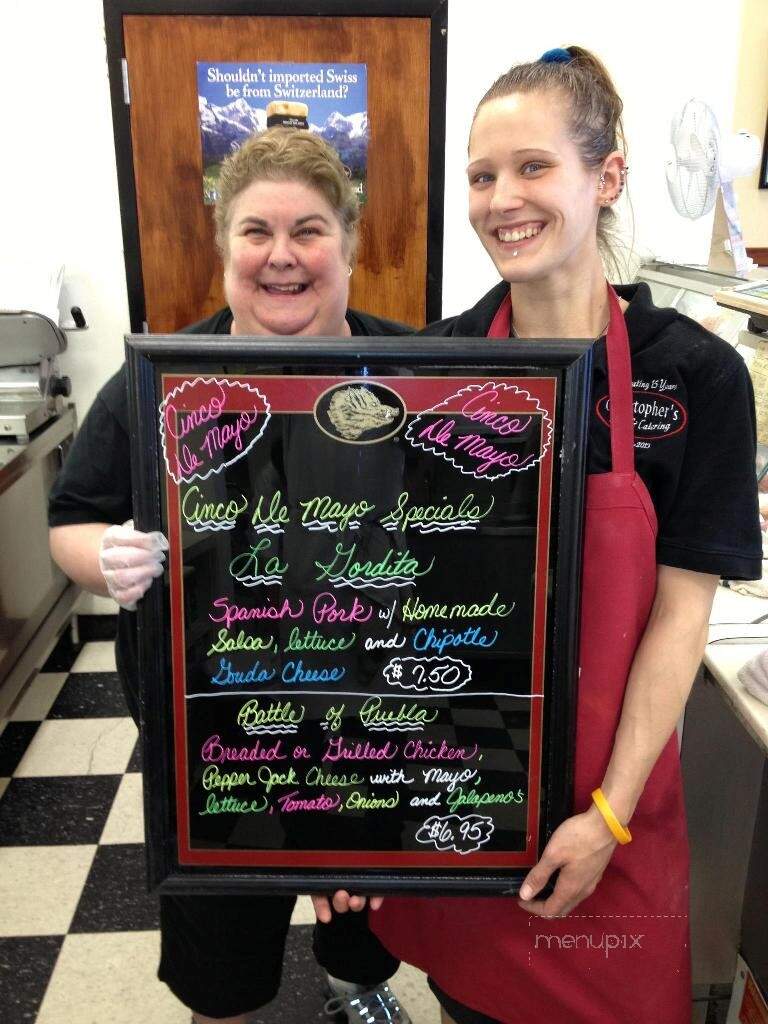 Shouldn't imported Swiss
be from Switzerland?
Cinco
De Mayo
Cinco
De Mayo
Cinco De Mayo Specials
La Gordita
Spanish Pork w/ Homemade
Salsa, lettuce and Chipotle
Gouda Cheese $7.50
Battle of Puebla
Breaded or Grilled Chicken,
Pepper Jack Cheese with Mayo,
lettuce, Tomato, Onions and Jalapeno's
$6.95
15 Years
& Catering
menupix